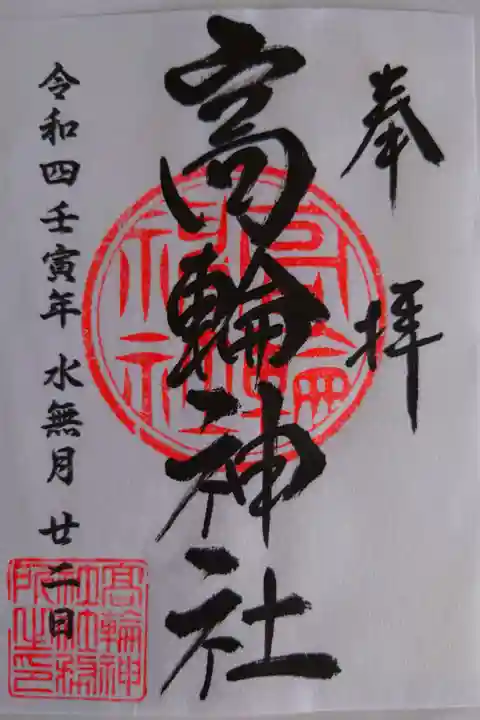 奉拝
高輪神社
令和四壬寅年 水無月 廿二日
高輪神社
高輪神社社務所之印